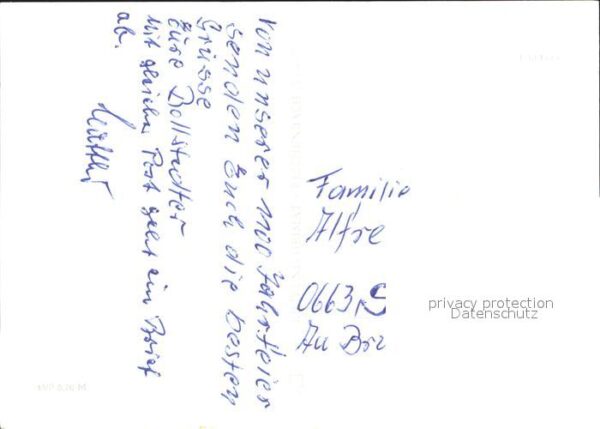 Von unserer 1100 Jahrfeier
senden Euch die besten
Grüsse
Eure Bollstedter
Mit gleicher Post geht ein Brief
ab.
Familie
Alfre
0663
Au Br
privacy protection
Datenschutz
EVP 0,20 M